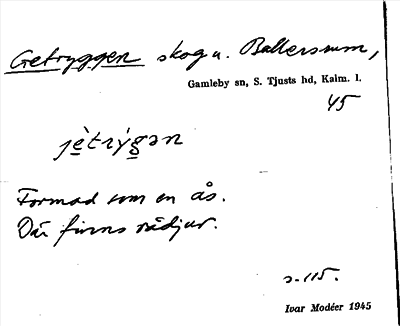 Getryggen skog u. Ballersum,
Gamleby sn, S. Tjusts hd, Kalm. l.
45
jètrýgən
Formad som en ås.
Där finns rådjur.
s. 115.
Ivar Modéer 1945